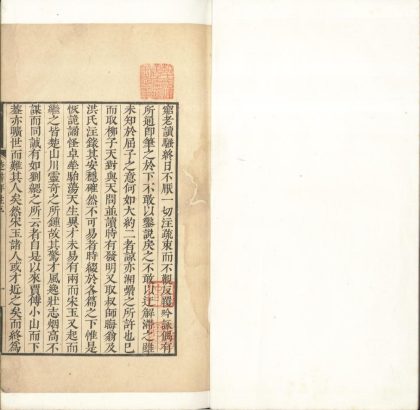 靈老讀騷終日不厭一切注疏束而不觀反覆吟詠偶有
所通即筆之於下不敢以鑿説戾之不敢以迂解滯之雖
未知於屈子之意何如大約二者諒亦湘纍之所許也已
而取柳子天對與天問並讀時有發明又取叔師晦翁及
洪氏注錄其安穩確然不可易者時綴於各篇之下惟是
恢詭譎怪卓犖駘蕩天生異才未易有兩而宋玉又起而
繼之皆楚山川靈奇之所鍾故其驚才風逸壯志烟高不
謀而同誠有如劉勰之所云者自是以來賈傅小山而下
葢亦曠世而難其人矣然宋玉諸人或才近之矣而終為